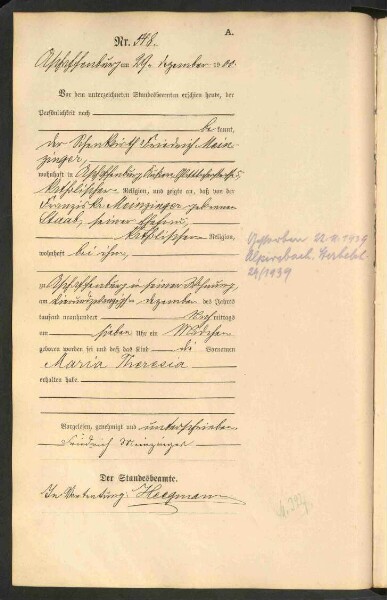 A.
Nr. 548.
Aschaffenburg am 29. Dezember 1900.
Vor dem unterzeichneten Standesbeamten erschien heute, der
Persönlichkeit nach
be kannt,
der Schenkwirth Friedrich Mein-
zinger,
wohnhaft in Aschaffenburg,
katholischer Religion, und zeigte an, daß von der
Franziska Meinzinger geborenen
Staab, seiner Ehefrau,
katholischer Religion,
wohnhaft bei ihm,
zu Aschaffenburg in seiner Wohnung,
am Dezember des Jahres
tausend neunhundert Nachmittags
um sieben Uhr ein Mädchen
geboren worden sei und daß das Kind die Vornamen
Maria Theresia
erhalten habe
Vorgelesen, genehmigt und unterschrieben
Friedrich Meinzinger
Der Standesbeamte.
In Vertretung: Heegmann
Gestorben
24/1939